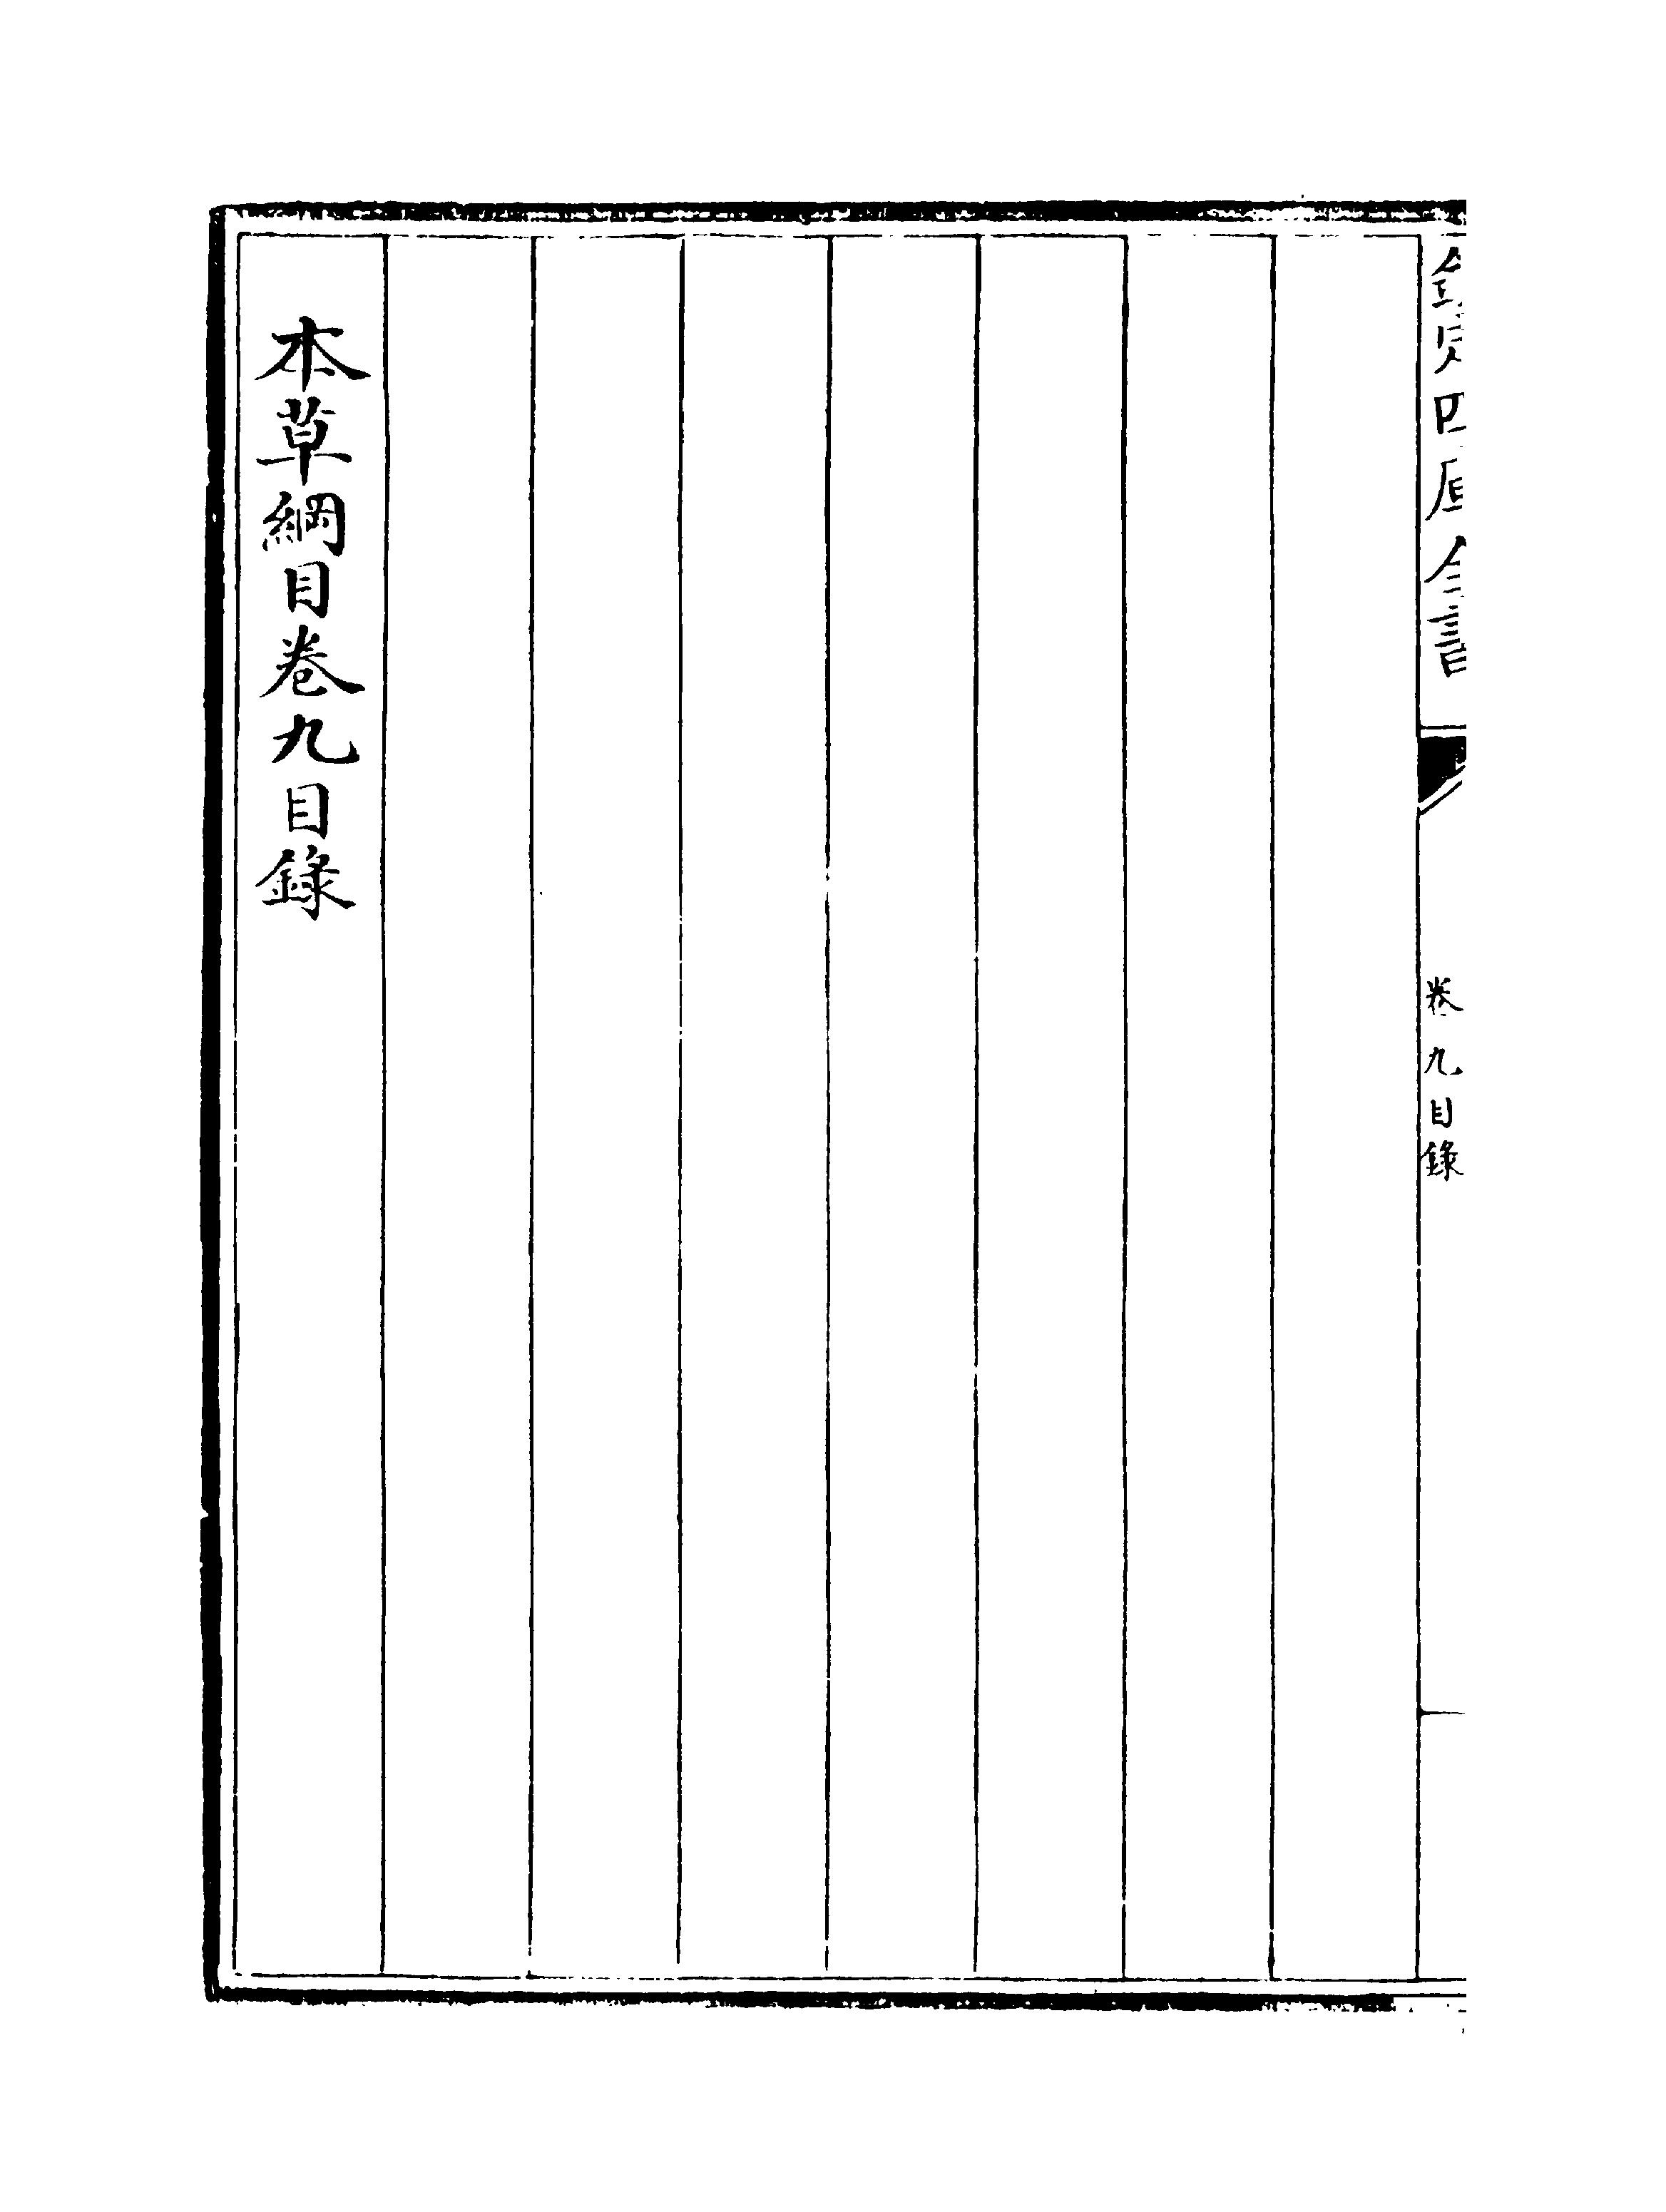 欽定四庫全書
卷九目錄
本草綱目卷九目錄